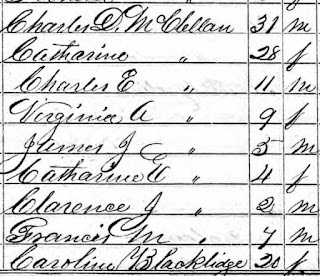 Charles D. McClellan 31 m
Catharine " 28 f
Charles E " 11 m
Virginia A " 9 f
James J " 5 m
Catharine E " 4 f
Clarence J " 2 m
Francis M " 7 m
Caroline Blacklidge 20 f